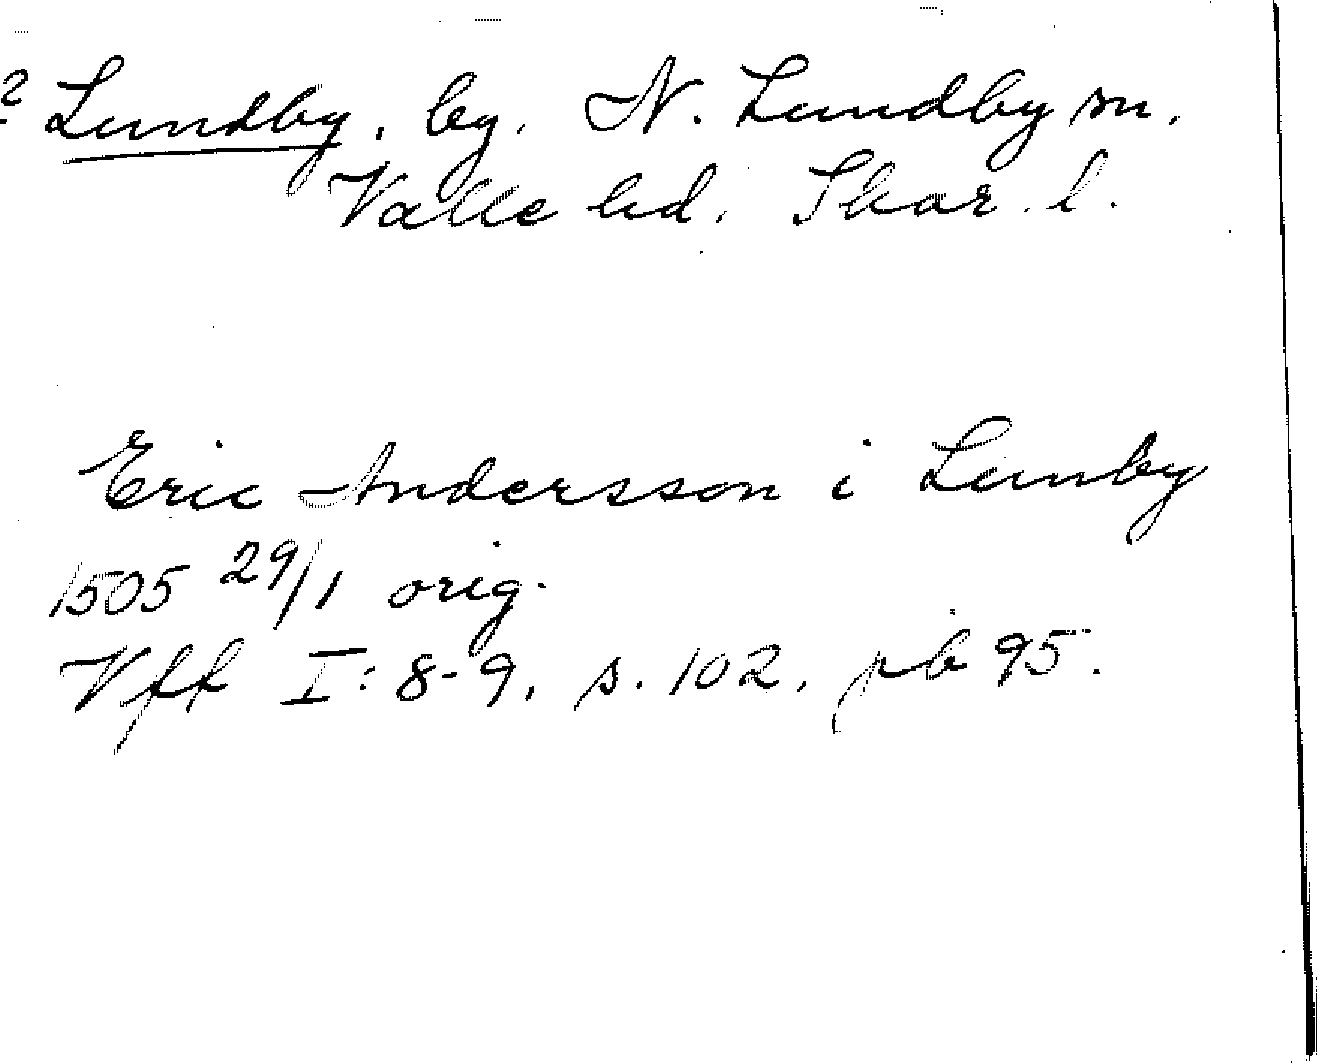 ? Lundby, by, N. Lundby sn.
Valle hd. Skar. l.
Eric Andersson i Lunby
1505 29/1 orig.
Vff I: 8-9, s. 102, pb 95.